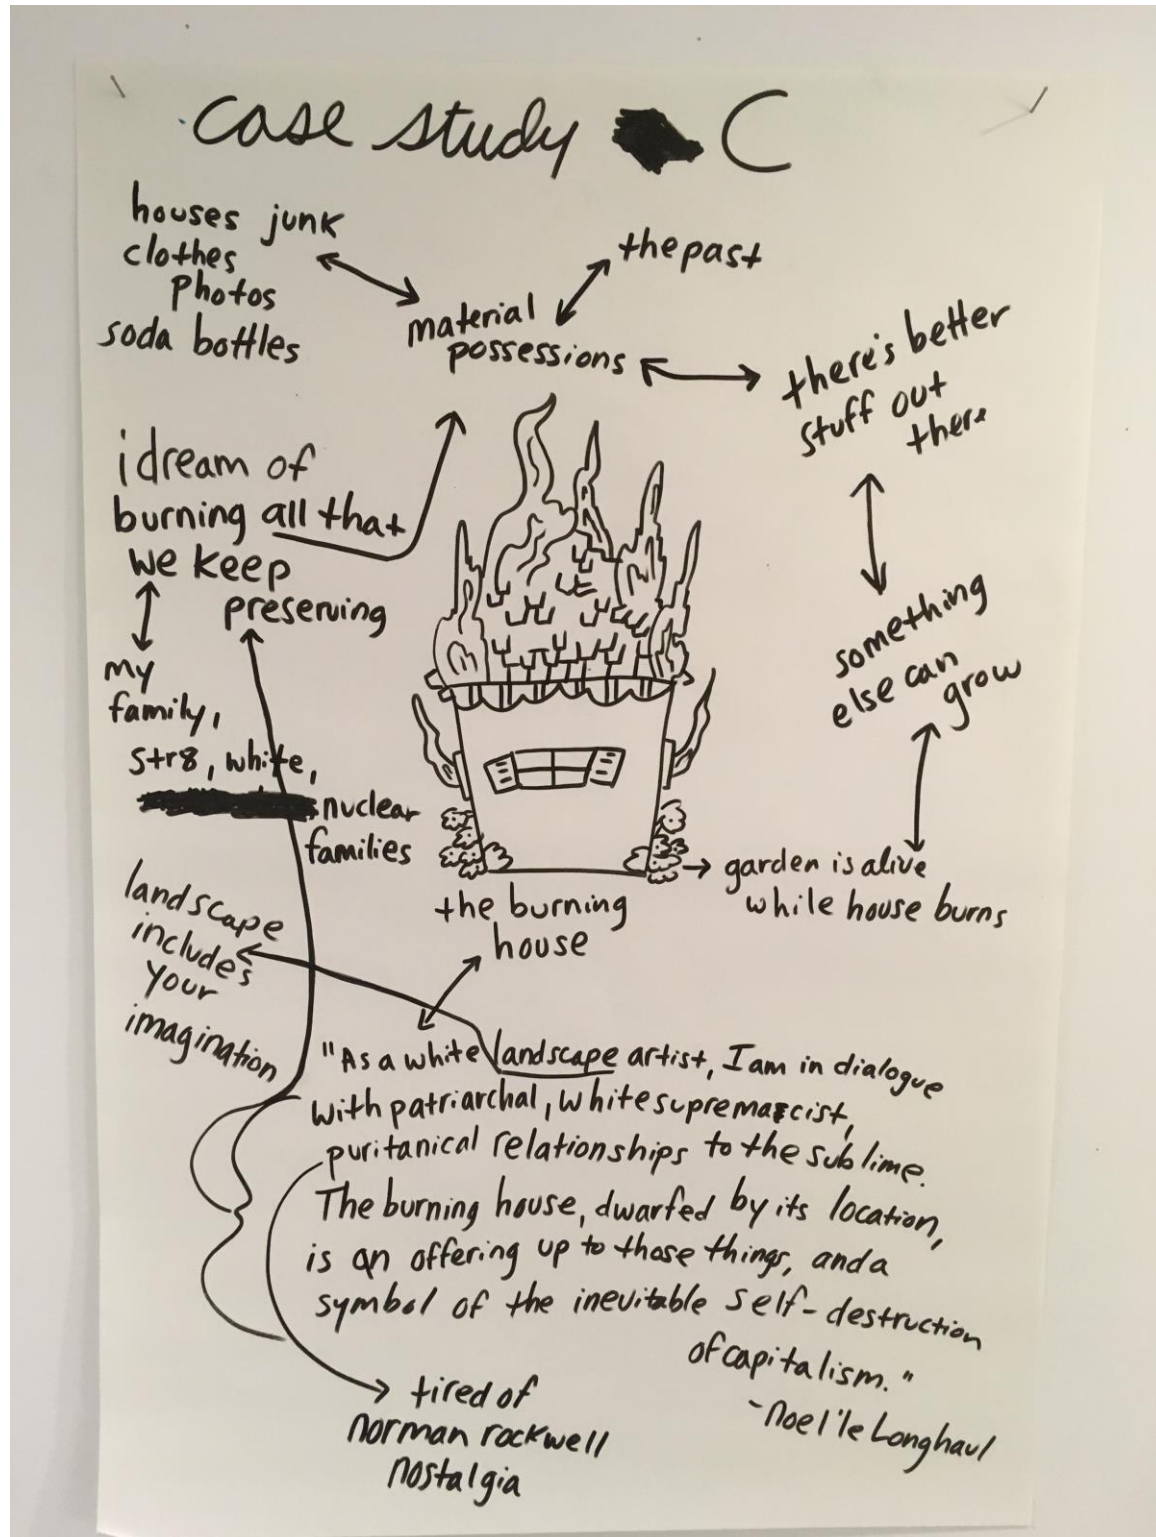 case study C
houses junk
clothes
photos
soda bottles
the past
material
possessions
there's better
stuff out
there
i dream of
burning all that
we keep
preserving
something
else can
grow
my
family,
str8, white,
nuclear
families
garden is alive
while house burns
the burning
house
landscape
includes
your
imagination
"As a white landscape artist, I am in dialogue
with patriarchal, white supremacist,
puritanical relationships to the sublime.
The burning house, dwarfed by its location,
is an offering up to those things, and a
symbol of the inevitable self-destruction
of capitalism."
-noel'le Longhaul
tired of
norman rockwell
nostalgia